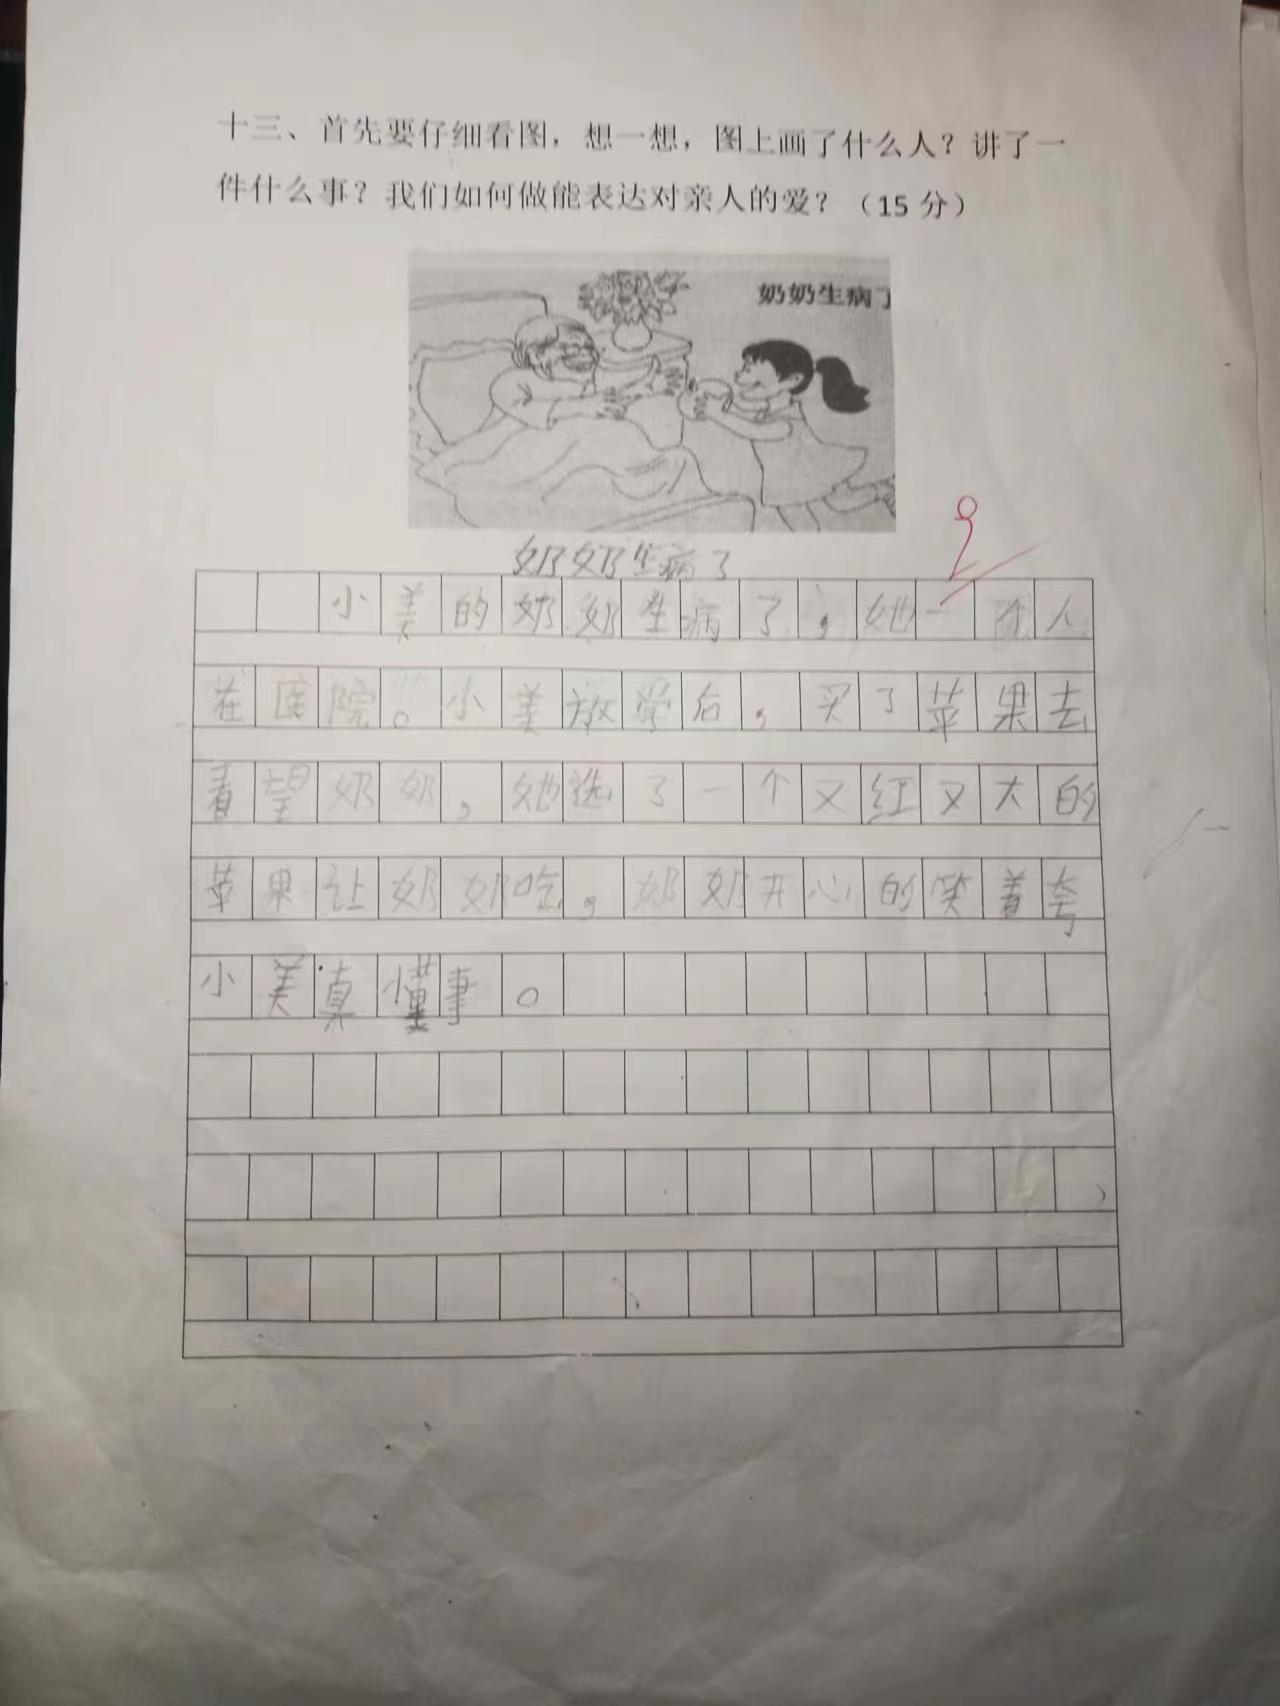 十三、首先要仔细看图，想一想，图上画了什么人？讲了一
件什么事？我们如何做能表达对亲人的爱？（15 分）
奶奶生病了
奶奶生病了
小美的奶奶生病了，她一个人
在医院。小美放学后，买了苹果去
看望奶奶，她选了一个又红又大的
苹果让奶奶吃，奶奶开心的笑着夸
小美真懂事。